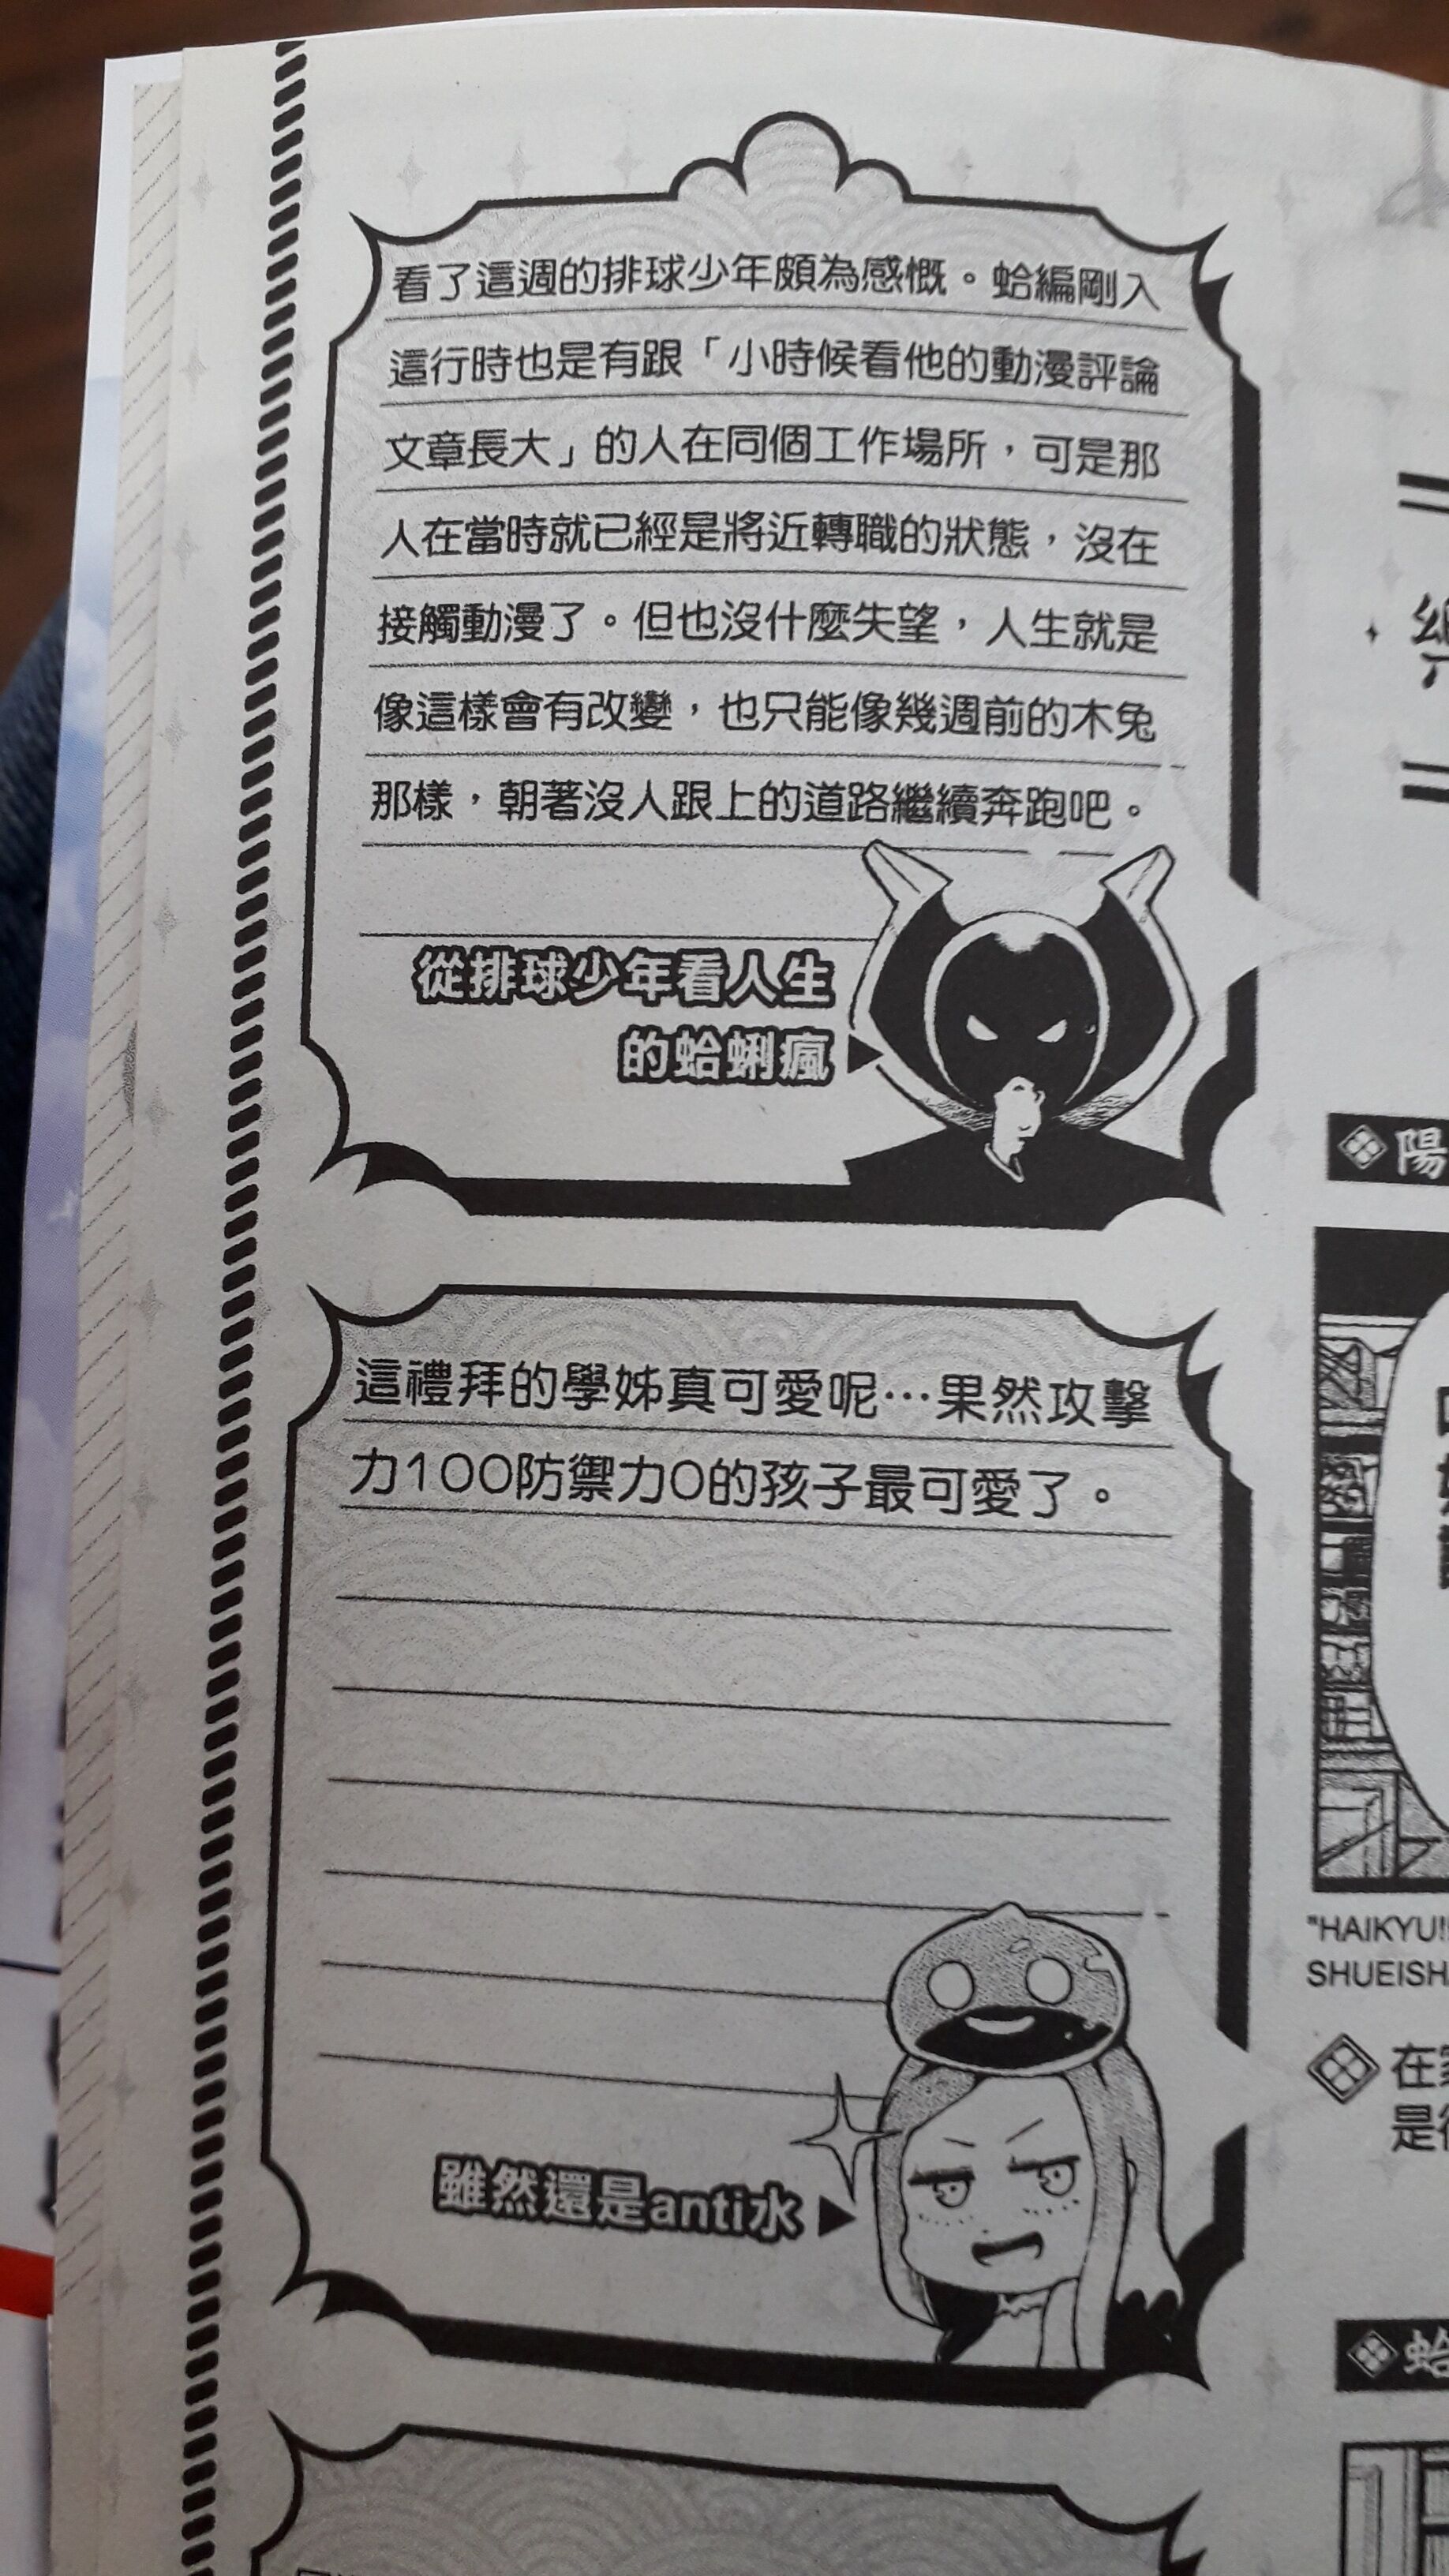 看了這週的排球少年頗為感慨。蛤編剛入
這行時也是有跟「小時候看他的動漫評論
文章長大」的人在同個工作場所，可是那
人在當時就已經是將近轉職的狀態，沒在
接觸動漫了。但也沒什麼失望，人生就是
像這樣會有改變，也只能像幾週前的木兔
那樣，朝著沒人跟上的道路繼續奔跑吧。
從排球少年看人生
的蛤蜊瘋
這禮拜的學姊真可愛呢…果然攻擊
力100防禦力0的孩子最可愛了。
雖然還是anti水
陽
"HAIKYU!!
SHUEISHA
在
是
蛤